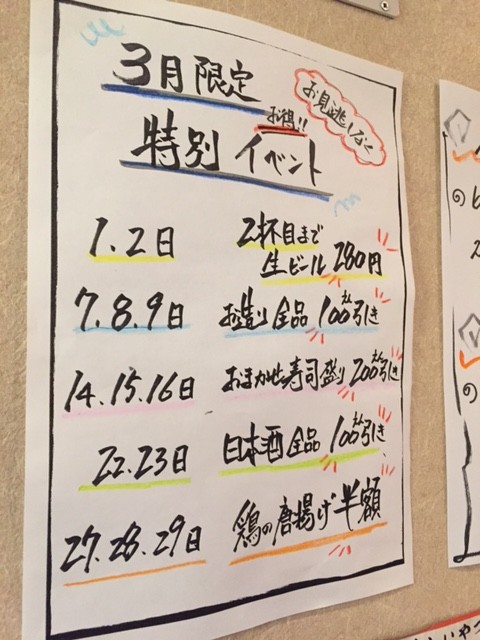 3月限定
お得!!
お見逃しなく
特別イベント
1.2日
2杯目まで
生ビール 280円
7.8.9日
お造り全品 100円引き
14.15.16日
おまかせ寿司盛り 200円引き
22.23日
日本酒全品 100円引き
27.28.29日
鶏の唐揚げ 半額
の
の